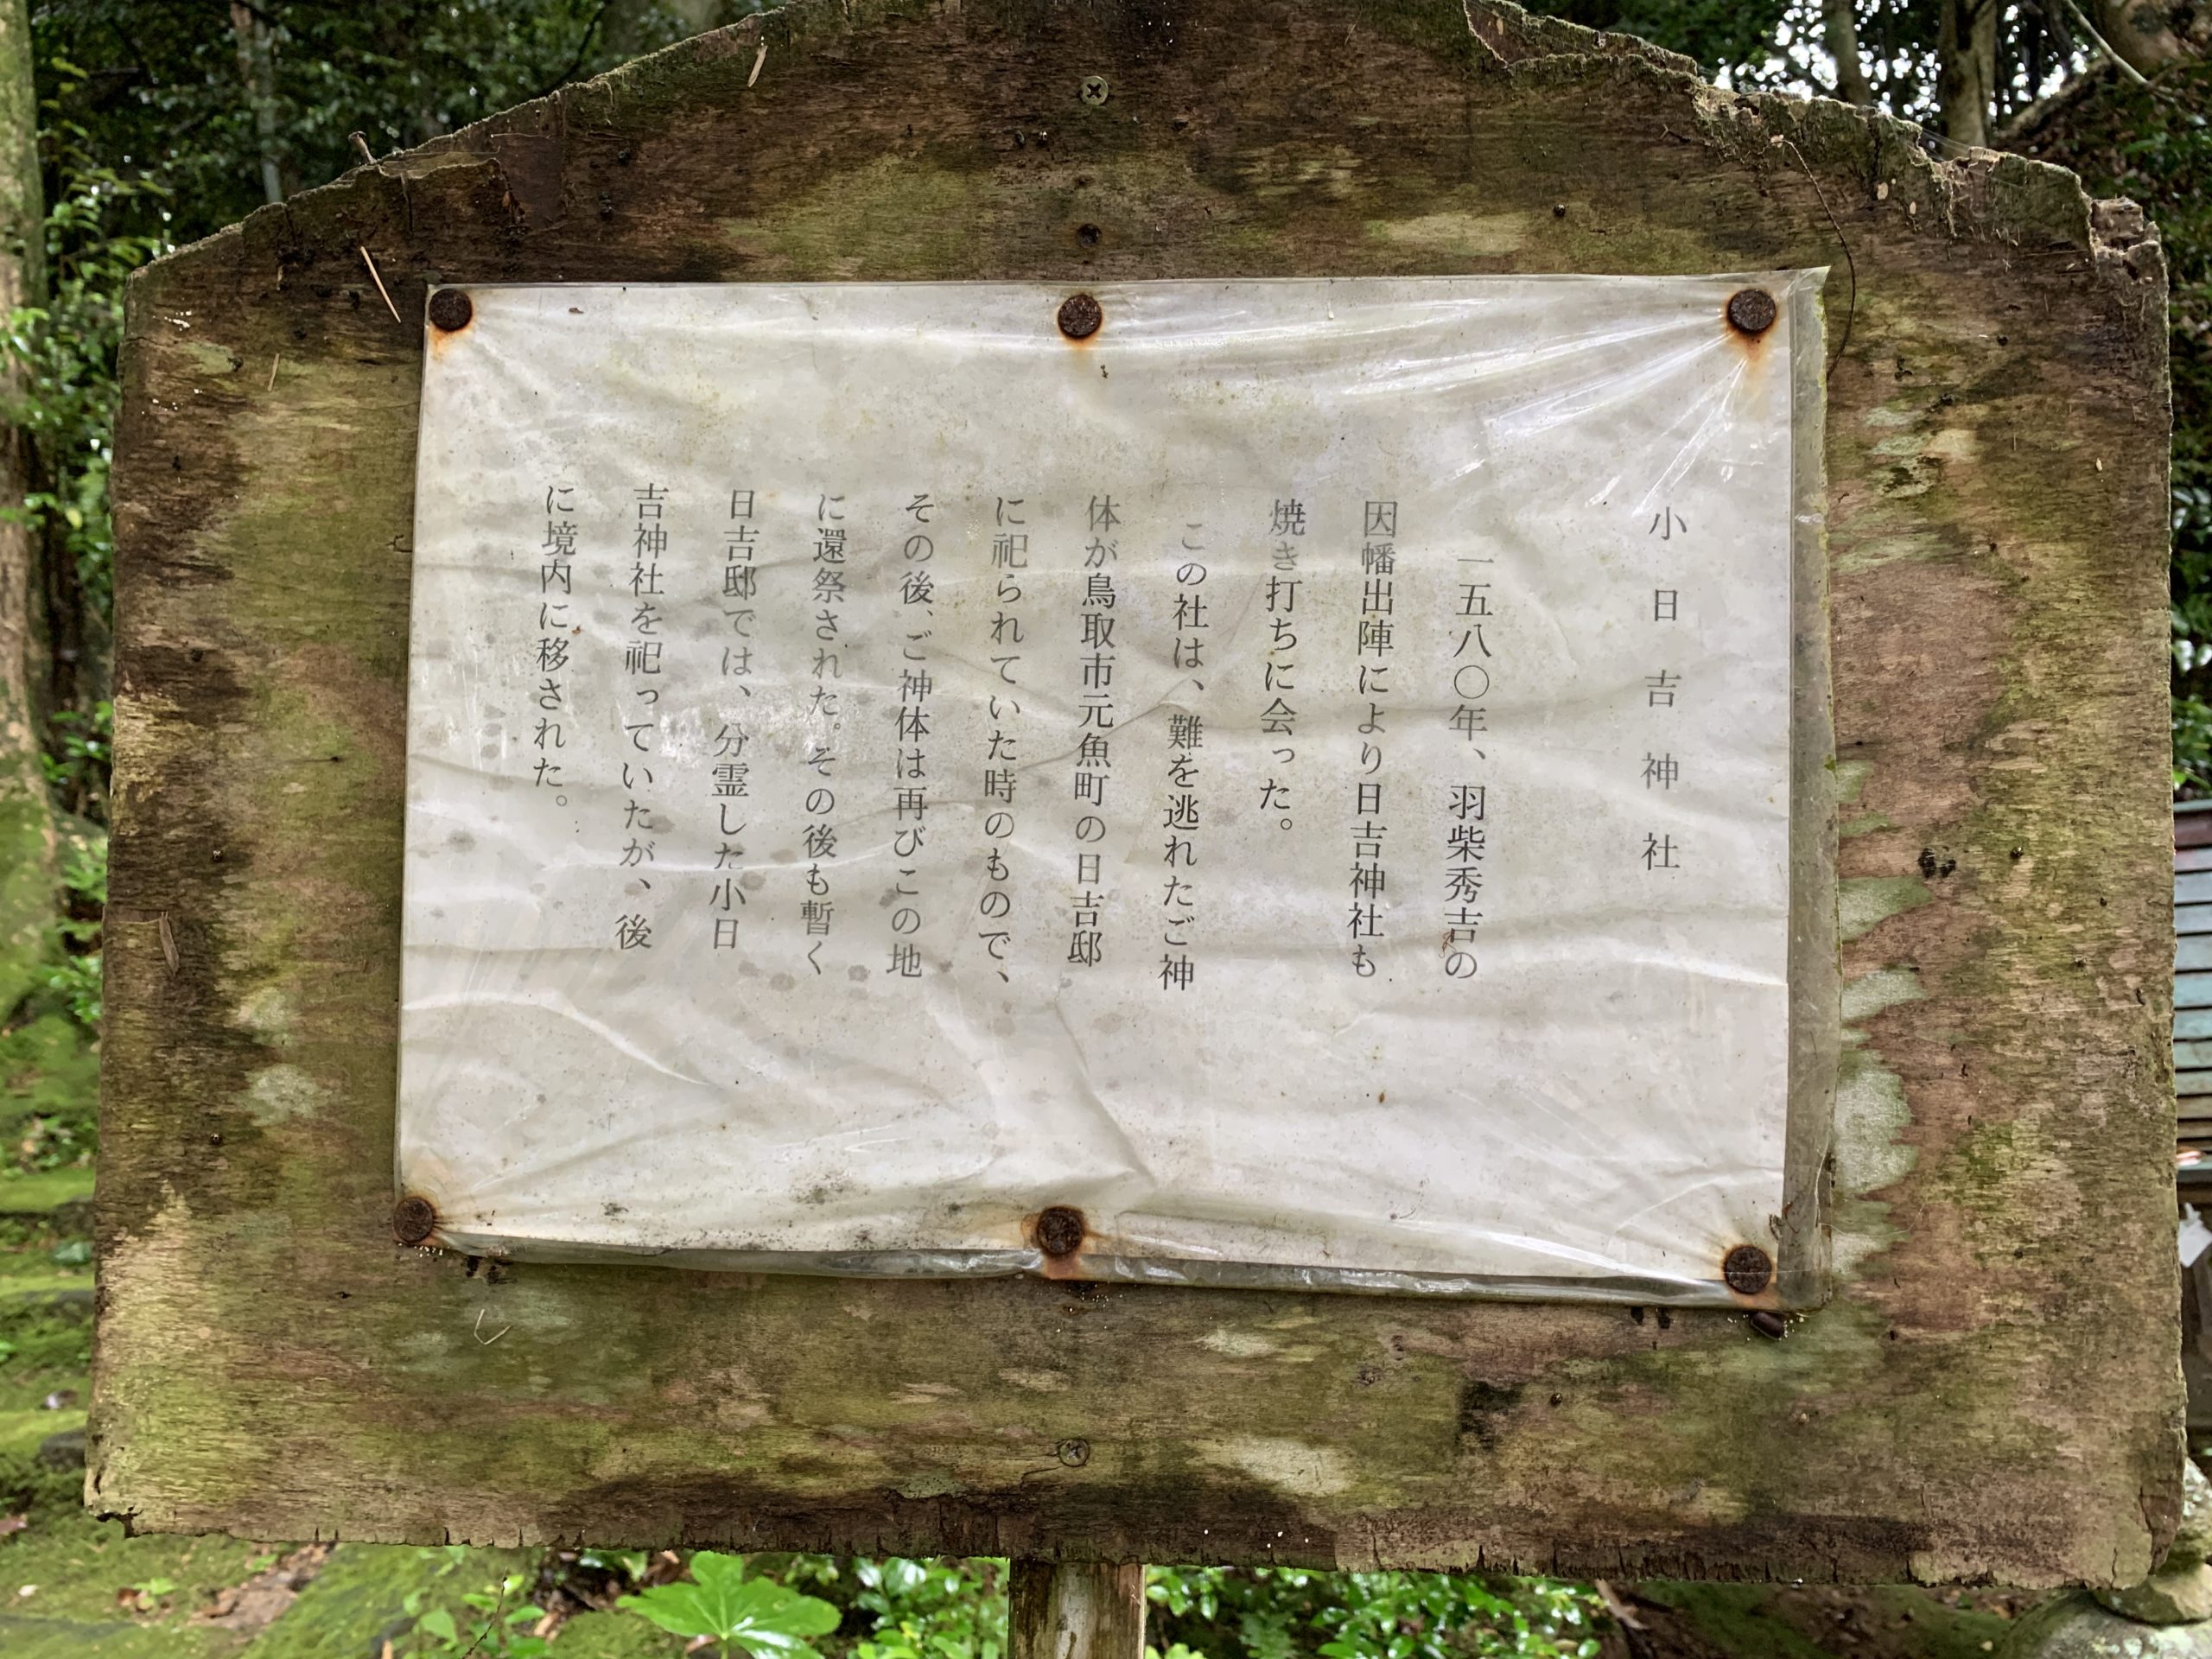 小日吉神社
一五八〇年、羽柴秀吉の
因幡出陣により日吉神社も
焼き打ちに会った。
この社は、難を逃れたご神
体が鳥取市元魚町の日吉邸
に祀られていた時のもので、
その後、ご神体は再びこの地
に還祭された。その後も暫く
日吉邸では、分霊した小日
吉神社を祀っていたが、後
に境内に移された。